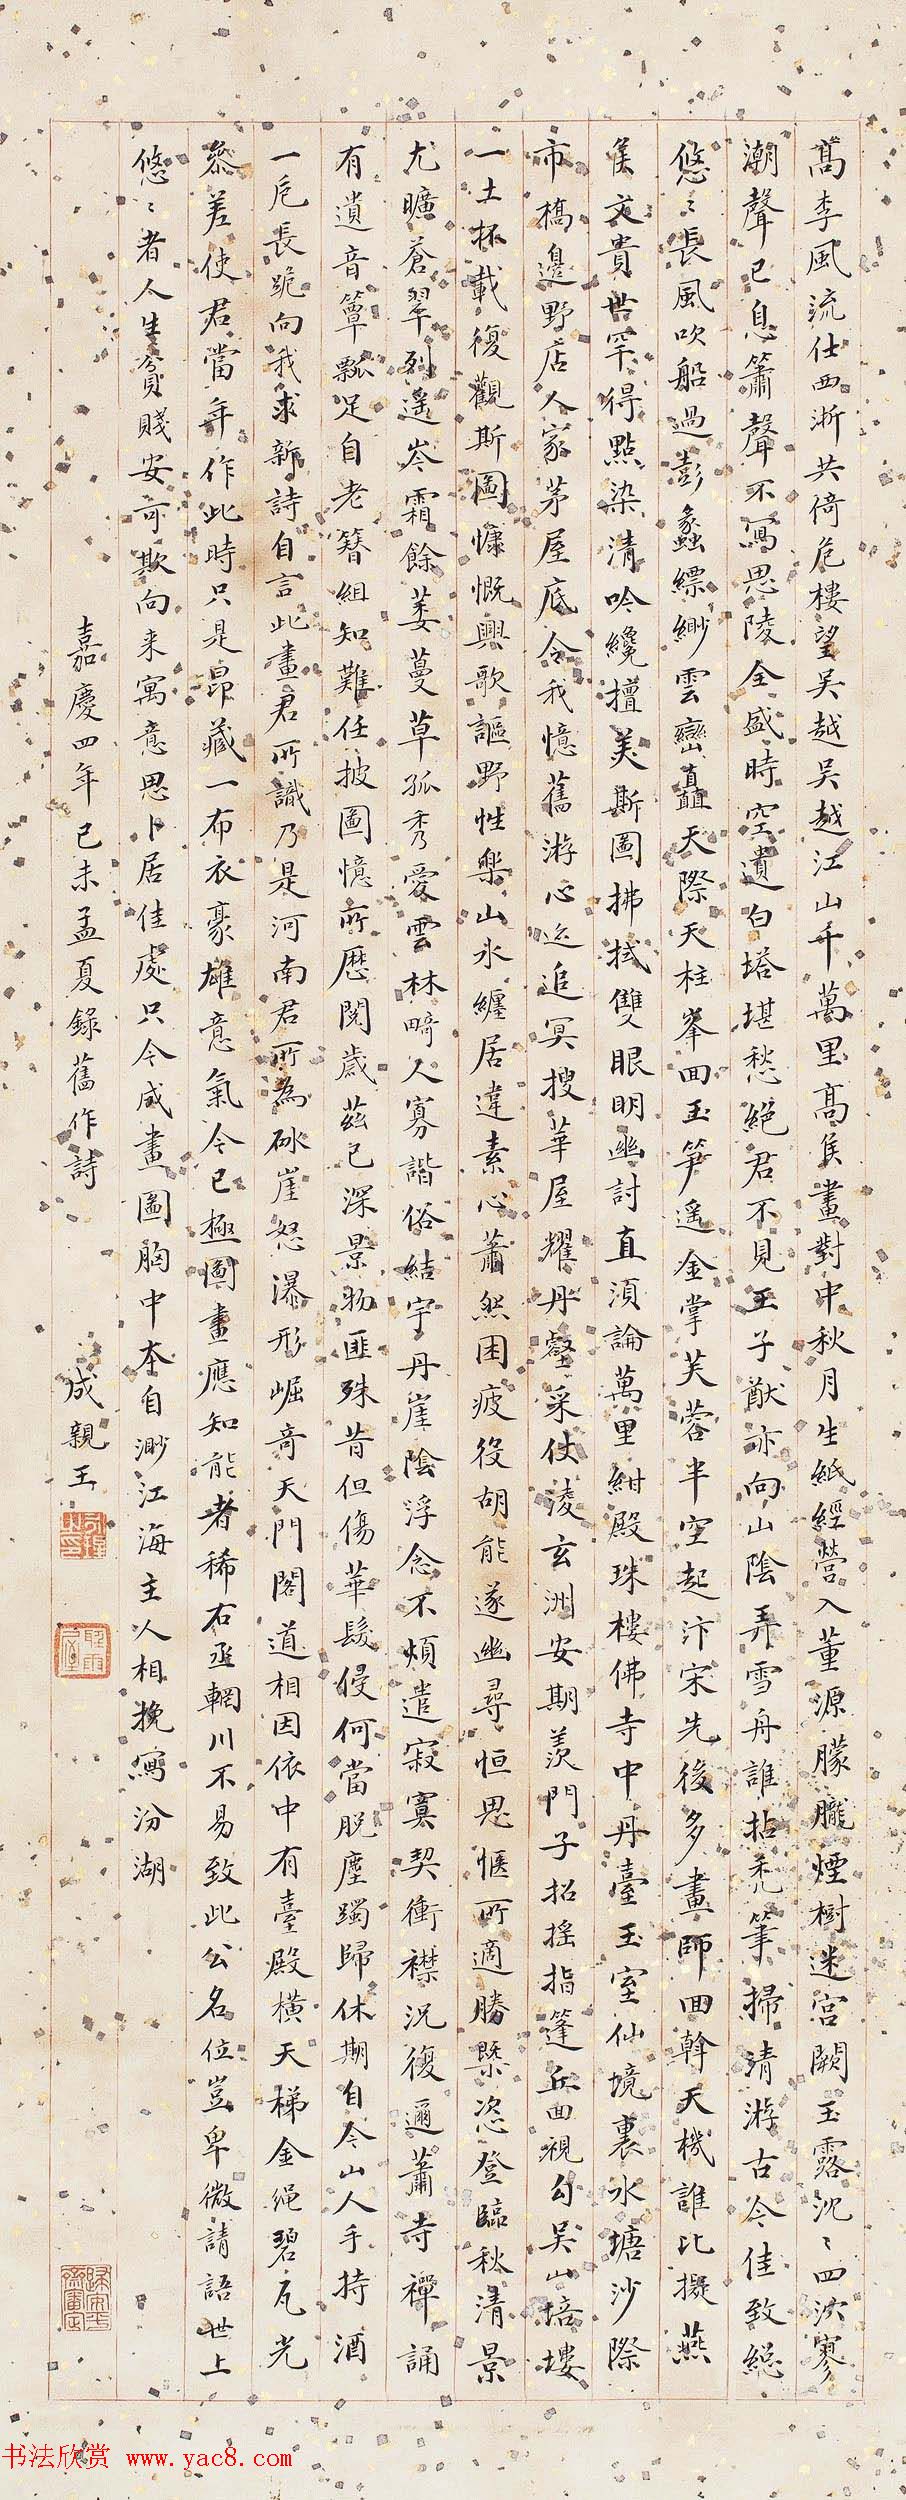 髙李風流仕西浙共倚危樓望吳越吳越江山千萬里髙侯畫對中秋月生紙經營入董源朦朧煙樹迷宮闕玉露沈〻四泬寥
潮聲已息簫聲不寫思陵全盛時空遺白塔堪愁絕君不見王子猷亦向山陰弄雪舟誰拈禿筆掃清游古今佳致總
悠〻長風吹船過彭蠡縹緲雲巒矗天際天柱峯回玉笋遥金掌芙蓉半空起汴宋先後多畫師回斡天機誰比擬燕
侯文貴世罕得點染清吟纔擅美斯圖拂拭雙眼明幽討直須論萬里紺殿珠樓佛寺中丹臺玉室仙境裏水塘沙際
市橋邊野店人家茅屋底令我憶舊游心迄追冥搜華屋耀丹壑采仗淩玄洲安期羨門子招摇指篷丘面視勾吳山培塿
一土杯載復觀斯圖慷慨興歌謳野性樂山水纏居違素心蕭然困疲役胡能遂幽尋恒思愜所適勝槩恣登臨秋清景
尤曠蒼翠列遥岑霜餘萎蔓草孤秀愛雲林畸人寡諧俗結宇丹崖陰浮念不煩遣寂寞契衝襟況復邇蕭寺禪誦
有遺音簞瓢足自老簪組知難任披圖憶所歷閱歲茲已深景物匪殊昔但傷華髮侵何當脫塵躅歸休期自今山人手持酒
一卮長跪向我求新詩自言此畫君所識乃是河南君所為砅崖怒瀑形崛奇天門閣道相因依中有臺殿橫天梯金繩碧瓦光
參差使君當年作此時只是昂藏一布衣豪雄意氣今已極圖畫應知能者稀右丞輞川不易致此公名位豈卑微請語世上
悠〻者人生貧賤安可欺向来寓意思卜居佳處只今成畫圖胸中本自渺江海主人相挽寫汾湖
嘉慶四年己未孟夏錄舊作詩 成親王
书法欣赏 www.yac8.com